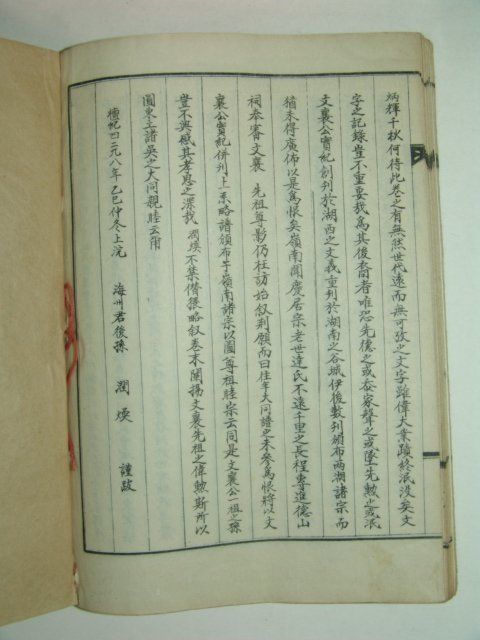 炳輝千秋何待此卷之有無然世代遠而無可攷之文字雖偉大業蹟終泯没矣文
字之記錄豈不重要哉爲其後裔者唯恐先德之或忝家聲之或墜先勳之或泯
文襄公實紀創刊於湖西之文義重刊於湖南之谷城伊後數刊頒布兩湖諸宗而
猶未得廣佈以是爲恨矣嶺南聞慶居宗老世達氏不遠千里之長程專進德山
祠奉審文襄 先祖尊影仍枉訪始叙刊願而曰往年大同譜之未參爲恨將以文
襄公實紀併刊上系略譜頒布于嶺南諸宗以圖尊祖睦宗云同是文襄公一祖之孫
豈不興感其孝思之深哉 潤煐不禁僭猥略叙卷末闡揚文襄先祖之偉勳斯所以
圖東土諸吳之大同親睦云爾
檀紀四二九八年乙巳仲冬上浣 海州君後孫 潤煐 謹跋